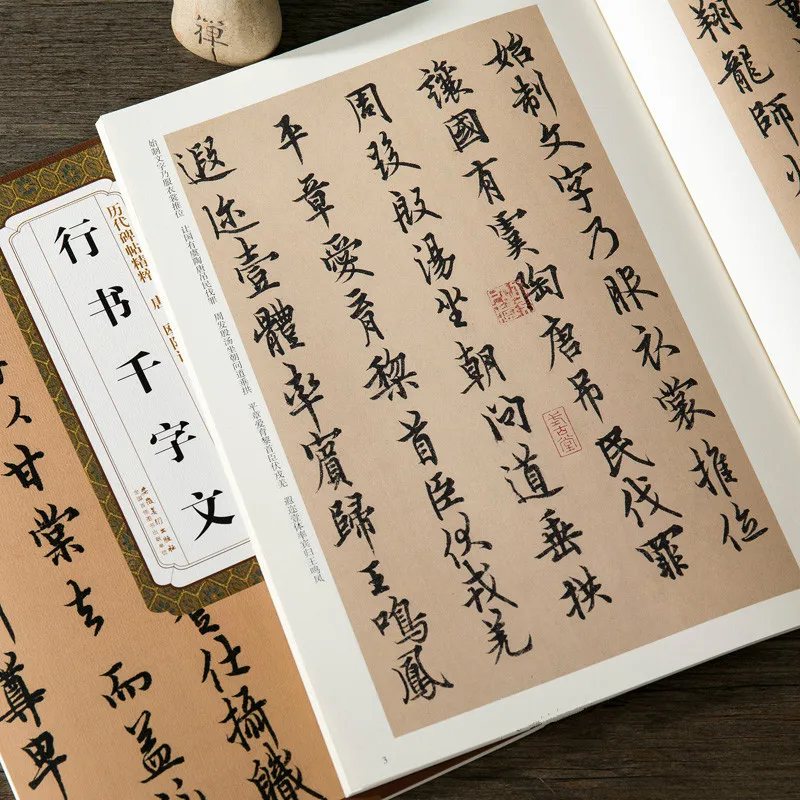 禪
翔龍師火
始制文字乃服衣裳推位
讓國有虞陶唐吊民伐罪
周發殷湯坐朝問道垂拱
平章愛育黎首臣伏戎羌
遐迩壹體率賓歸王鳴鳳
始制文字乃服衣裳推位 让国有虞陶唐吊民伐罪 周发殷汤坐朝问道垂拱 平章爱育黎首臣伏戎羌 遐迩壹体率宾归王鸣凤
3
历代碑帖精粹
行书千字文
安徽美术出版社
仕攝職
甘棠去而益
尊卑